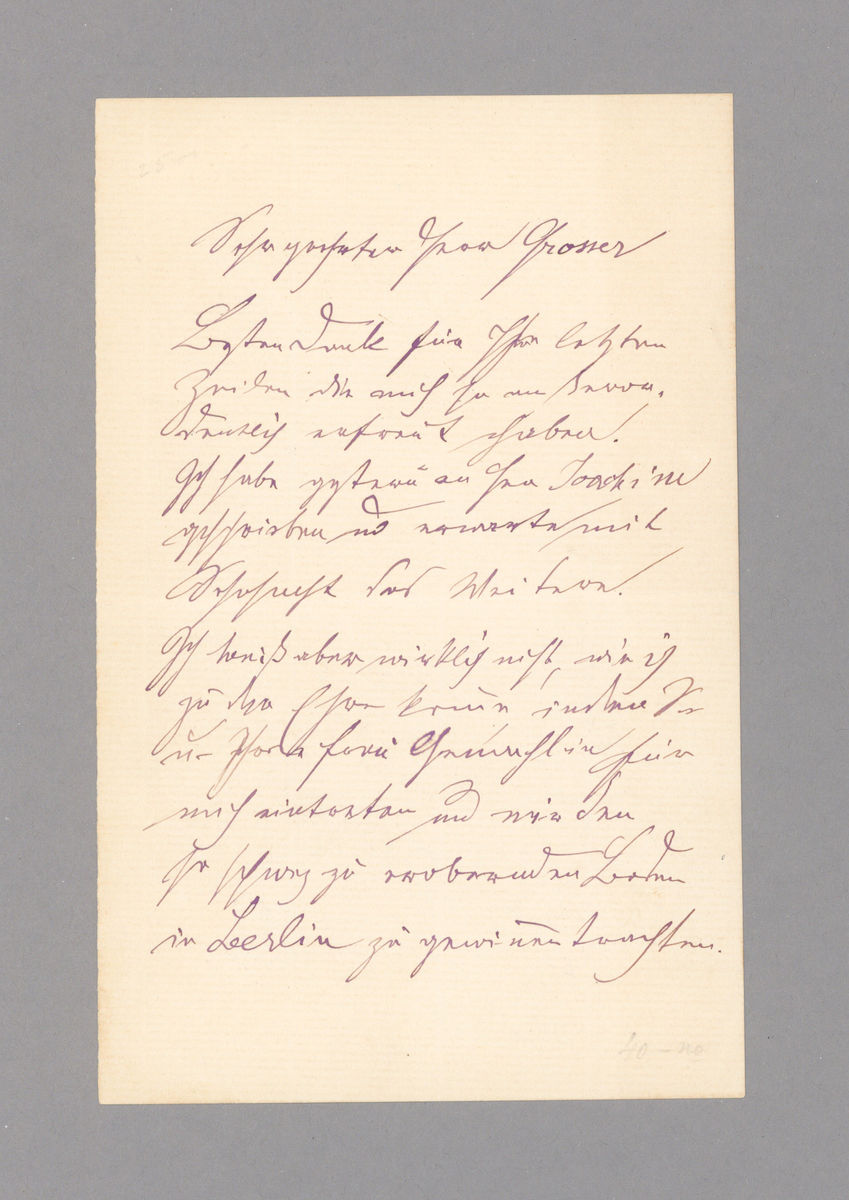 Sehr geehrter Herr Grosser
Besten Dank für Ihre letzten
Zeilen die mich so außeror-
dentlich erfreut haben.
Ich habe gestern an Herrn Joachim
geschrieben und erwarte mit
Sehnsucht das Weitere.
Ich weiß aber wirklich nicht, wie ich
zu der Ehre komme indem Sie
u- Ihre Frau Gemahlin für
mich eintreten und mir den
so schwer zu erobernden Boden
in Berlin zu gewinnen trachten.